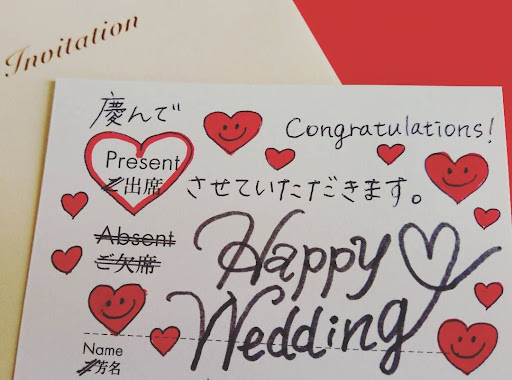 Invitation
慶んで
Congratulations!
Present
ご出席 させていただきます。
Absent
ご欠席
Happy
Wedding
Name
ご芳名